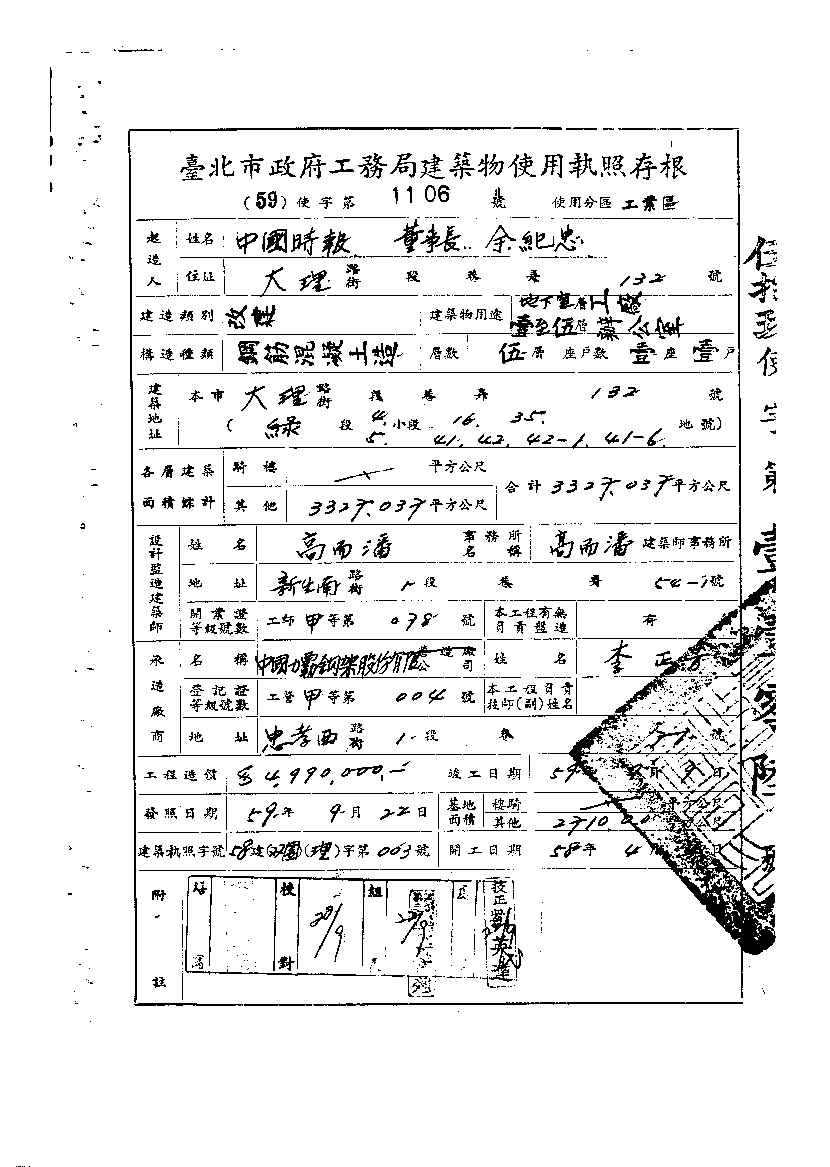 臺北市政府工務局建築物使用執照存根
(59)使字第 1106 號 使用分區 工業區
起造人 姓名 中國時報 董事長 余紀忠
住址 大理 路街 段 巷 弄 132 號
建造類別 改建 建築物用途 地下室層工廠 壹至伍層辦公室
構造種類 鋼筋混凝土造 層數 伍層 座戶數 壹座 壹戶
建築地址 本市 大理 路街 段 巷 弄 132 號
(綠 段 4. 5. 小段 16. 35. 41. 42. 42-1. 41-6. 地號)
各層建築面積總計 騎樓 平方公尺
其他 平方公尺 合計 平方公尺
設計監造建築師 姓名 高而潘 事務所名稱 高而潘 建築師事務所
地址 新生南 路街 1段 巷 弄 54-1號
開業證等級號數 工師 甲 等第 038 號 本工程有無負責監造 有
承造廠商 名稱 中國力霸鋼架股份有限公司 姓名 李正
登記證等級號數 工營 甲 等第 004 號 本工程負責技師(副)姓名
地址 忠孝西 路街 1段 巷 號
工程造價 $4,990,000.- 竣工日期 59年 月 9日
發照日期 59年 9月 22日 基地面積 騎樓 平方公尺
其他 2710.00 公尺
建築執照字號 58建 (理)字第003號 開工日期 58年 4
附註 校對 組 校正 劉英
伍拾玖使字第壹